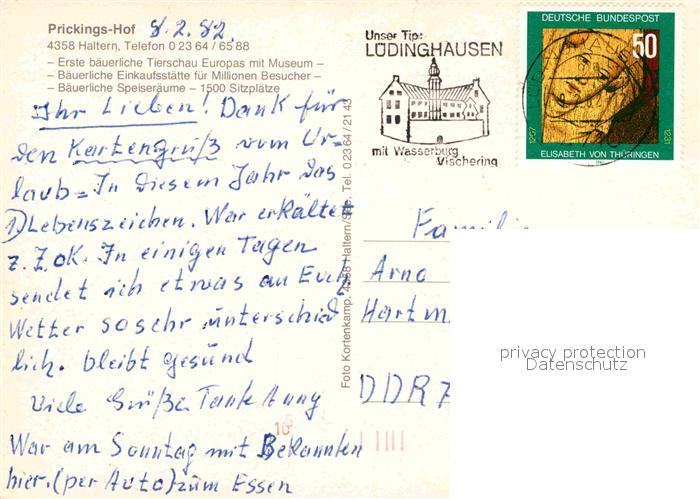 Prickings-Hof 8.2.82.
4358 Haltern, Telefon 0 23 64 / 65 88
– Erste bäuerliche Tierschau Europas mit Museum –
– Bäuerliche Einkaufsstätte für Millionen Besucher –
– Bäuerliche Speiseräume – 1500 Sitzplätze
Ihr Lieben! Dank für
den Kartengruß vom Ur-
laub = In diesem Jahr das
1) Lebenszeichen. War erkältet
z. Z. oK. In einigen Tagen
sendet ich etwas an Euch
Wetter so sehr unterschied
lich. bleibt gesund
Viele Grüße Tante Anny
War am Sonntag mit Bekannten
hier. (per Auto) zum Essen
Foto Kortenkamp, 4358 Haltern/ Tel. 0 23 64 / 21 43
Unser Tip:
LÜDINGHAUSEN
mit Wasserburg
Vischering
DEUTSCHE BUNDESPOST
50
1207
1231
ELISABETH VON THÜRINGEN
Familie
Arno
Hartm
DDR 7
privacy protection
Datenschutz